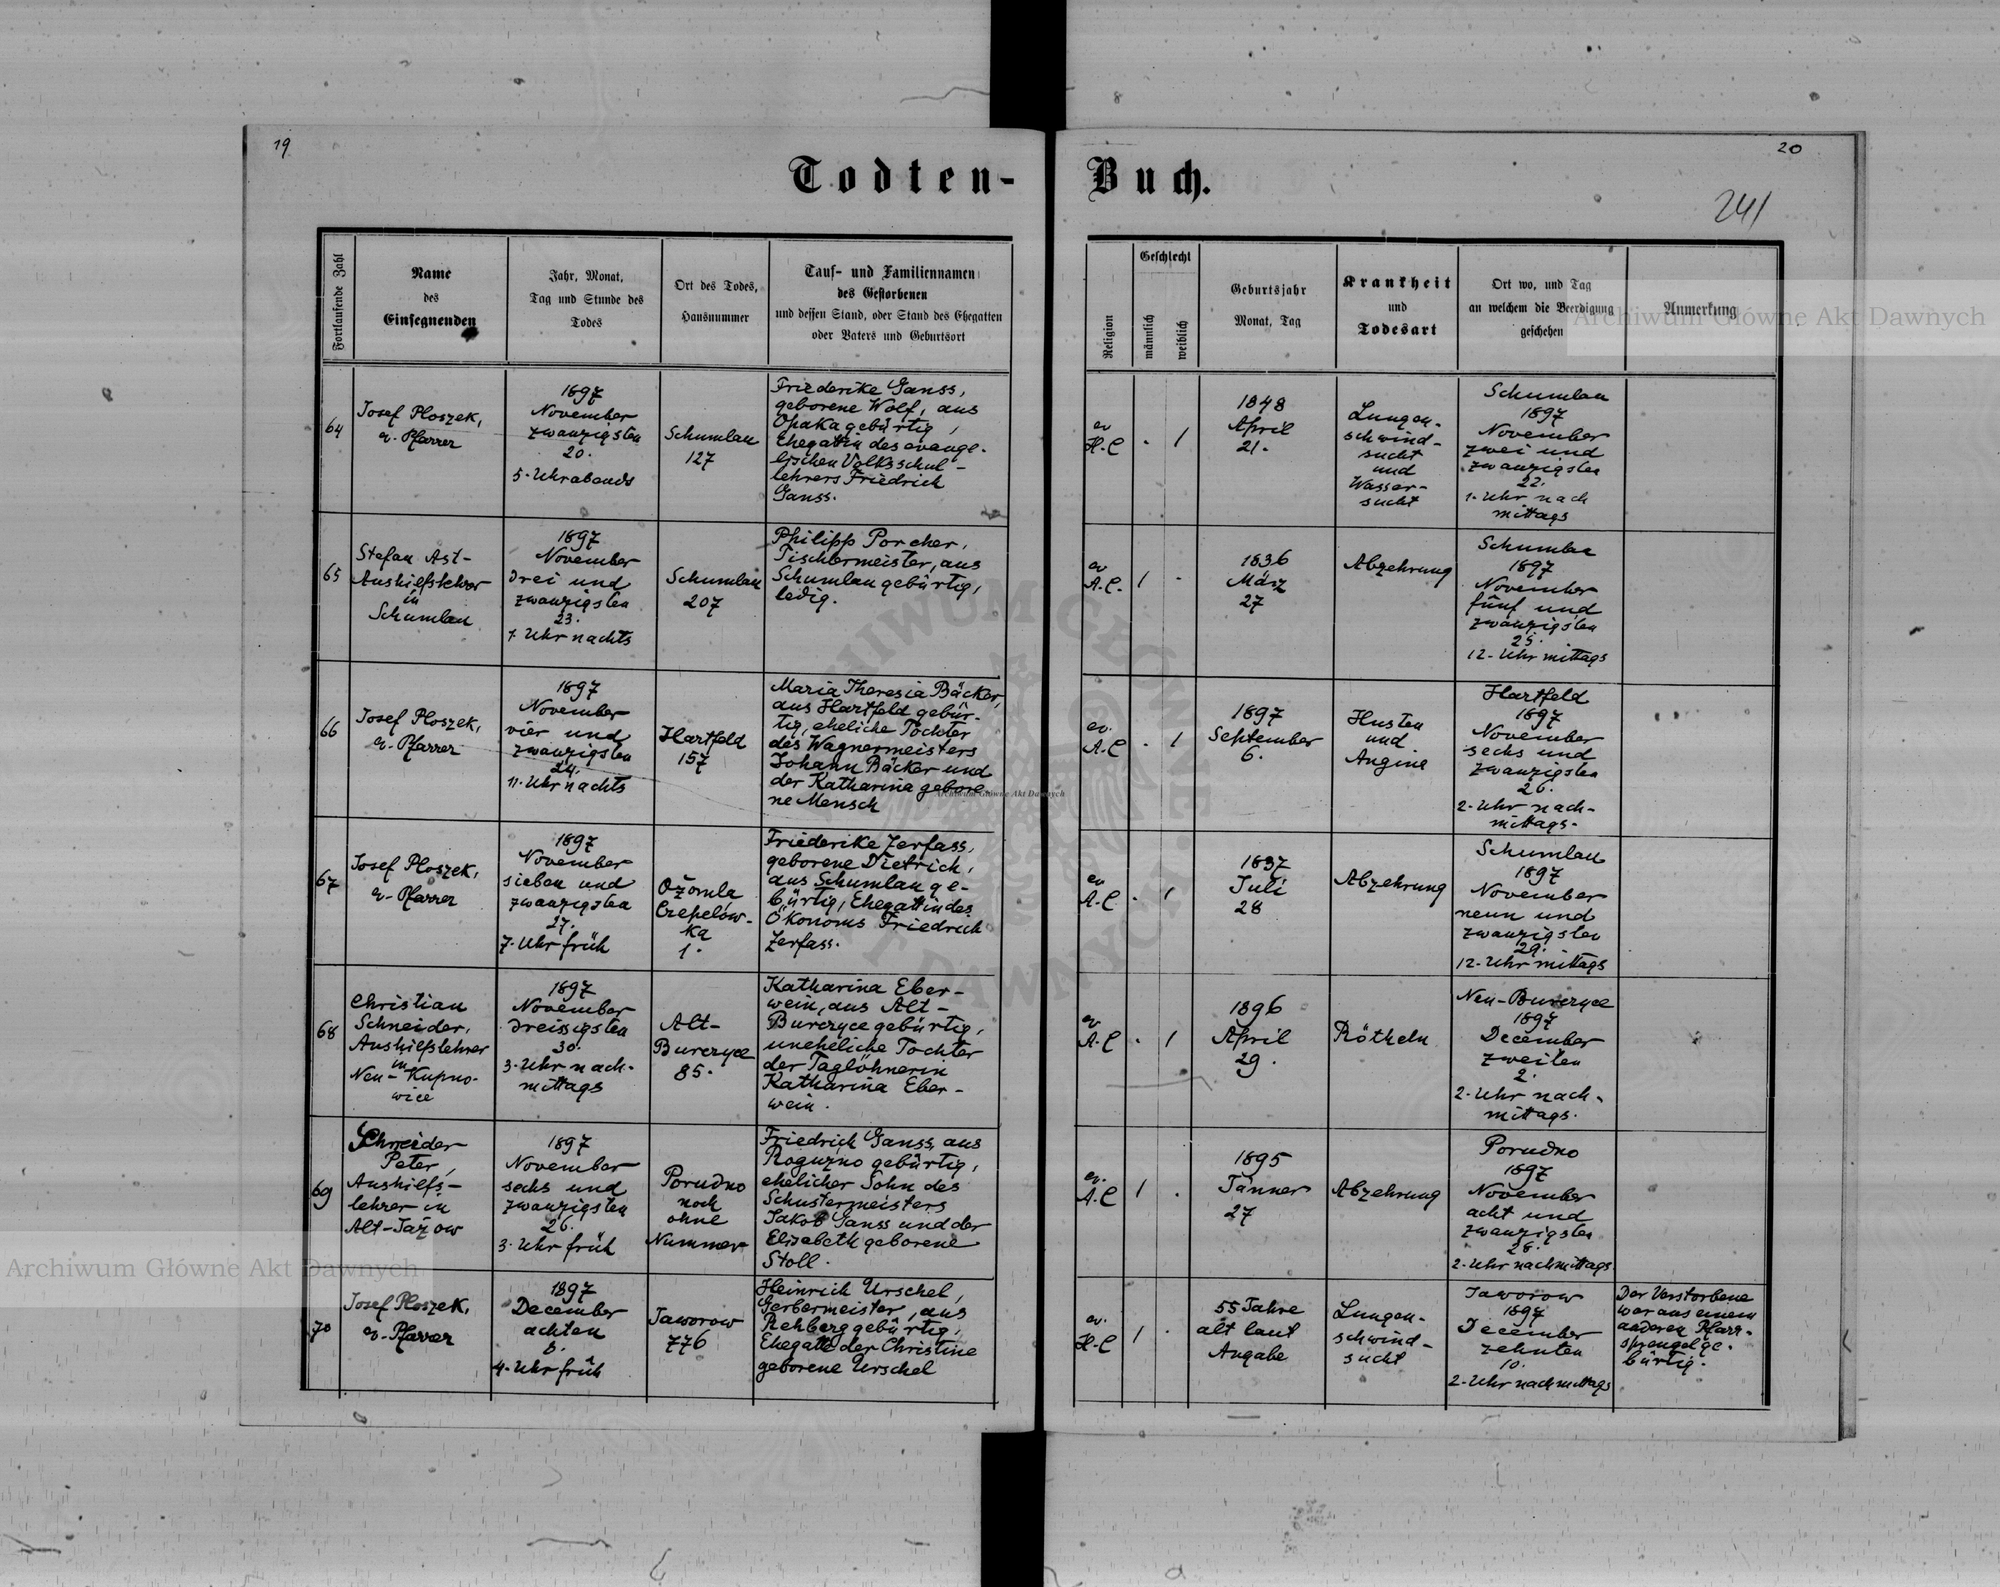 19
20
Todten-
Buch.
241
Fortlaufende Zahl
Name
des
Einsegnenden
Jahr, Monat,
Tag und Stunde des
Todes
Ort des Todes,
Hausnummer
Tauf- und Familiennamen
des Gestorbenen
und dessen Stand, oder Stand des Ehegatten
oder Vaters und Geburtsort
Religion
Geschlecht
männlich
weiblich
Geburtsjahr
Monat, Tag
Krankheit
und
Todesart
Ort wo, und Tag
an welchem die Beerdigung
geschehen
Anmerkung
64
Josef Ploszek,
ev. Pfarrer
1897
November
zwanzigsten
20.
5. Uhr abends
Schumlau
127
Friederike Ganss,
geborene Wolf, aus
Opaka gebürtig,
Ehegattin des evange-
lischen Volksschul-
lehrers Friedrich
Ganss.
ev
H.C
.
1
1848
April
21.
Lungen-
schwind-
sucht
und
Wasser-
sucht
Schumlau
1897
November
zwei und
zwanzigsten
22.
1. Uhr nach
mittags
65
Stefan Ast-
Aushilfslehrer
in
Schumlau
1897
November
drei und
zwanzigsten
23.
1. Uhr nachts
Schumlau
207
Philipp Porcher,
Tischlermeister, aus
Schumlau gebürtig,
ledig.
ev
A.C.
1
.
1836
März
27
Abzehrung
Schumlau
1897
November
fünf und
zwanzigsten
25.
12. Uhr mittags
66
Josef Ploszek,
ev. Pfarrer
1897
November
vier und
zwanzigsten
24.
11. Uhr nachts
Hartfeld
157
Maria Theresia Bäcker,
aus Hartfeld gebür-
tig, eheliche Tochter
des Wagnermeisters
Johann Bäcker und
der Katharina gebore
ne Mensch
ev.
A.C
.
1
1897
September
6.
Husten
und
Angine
Hartfeld
1897
November
sechs und
zwanzigsten
26.
2. Uhr nach-
mittags.
67
Josef Ploszek,
ev. Pfarrer
1897
November
sieben und
zwanzigsten
27.
7. Uhr früh
Ožomla
Czepelów-
ka
1.
Friederike Zerfass,
geborene Dietrich,
aus Schumlau ge-
bürtig, Ehegattin des
Ökonoms Friedrich
Zerfass.
ev
A.C
.
1
1837
Juli
28
Abzehrung
Schumlau
1897
November
neun und
zwanzigsten
29.
12. Uhr mittags
68
Christian
Schneider,
Aushilfslehrer
in
Neu-Kupno-
wice
1897
November
dreissigsten
30.
3. Uhr nach-
mittags
Alt-
Burczyce
85.
Katharina Eber-
wein, aus Alt-
Burczyce gebürtig,
uneheliche Tochter
der Taglöhnerin
Katharina Eber-
wein.
ev
A.C
.
1
1896
April
29.
Rötheln
Neu-Burczyce
1897
December
zweiten
2.
2. Uhr nach-
mittags.
69
Schneider
Peter,
Aushilfs-
lehrer in
Alt-Jažow
1897
November
sechs und
zwanzigsten
26.
3. Uhr früh
Porudno
noch
ohne
Nummer
Friedrich Ganss, aus
Roguzno gebürtig,
ehelicher Sohn des
Schustermeisters
Jakob Ganss und der
Elisabeth geborene
Stoll.
ev.
A.C
1
.
1895
Jänner
27
Abzehrung
Porudno
1897
November
acht und
zwanzigsten
28.
2. Uhr nachmittags
70
Josef Ploszek,
ev. Pfarrer
1897
December
achten
8.
4. Uhr früh
Jaworow
776
Heinrich Urschel,
Gerbermeister, aus
Rehberg gebürtig,
Ehegatte der Christine
geborene Urschel
ev.
H.C
1
.
55 Jahre
alt laut
Angabe
Lungen-
schwind-
sucht
Jaworow
1897
December
zehnten
10.
2. Uhr nachmittags
Der Verstorbene
war aus einem
anderen Pfarr-
sprengel ge-
bürtig.
Archiwum Główne Akt Dawnych
Archiwum Główne Akt Dawnych
Archiwum Główne Akt Dawnych